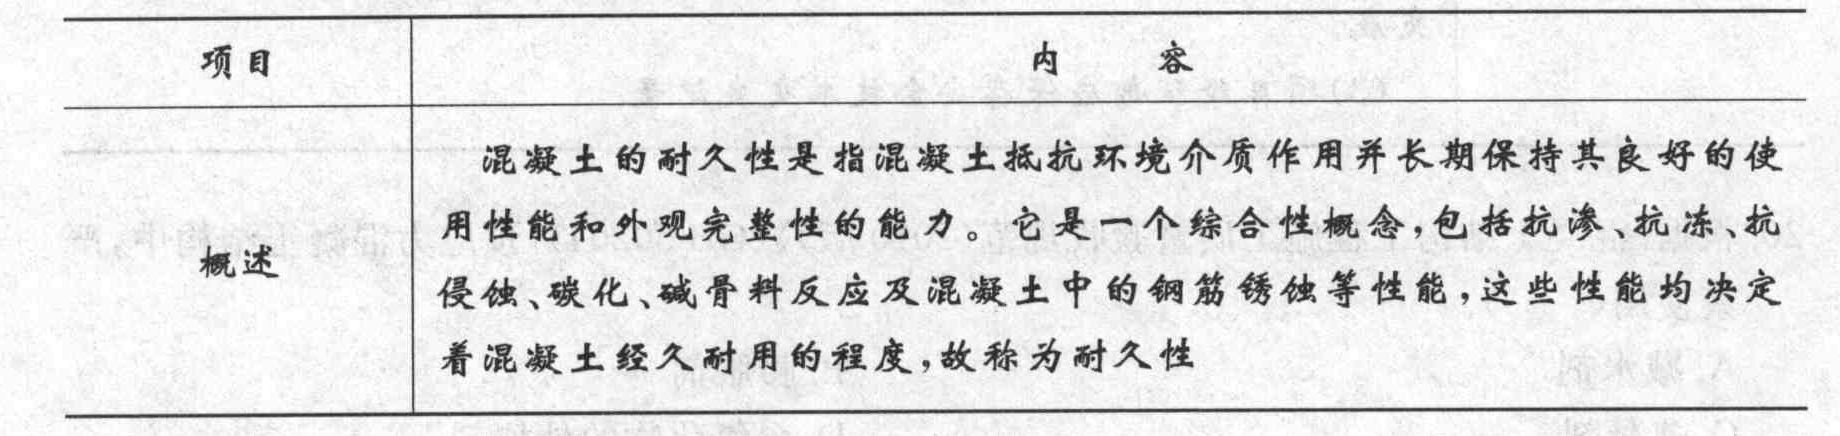 项目
内 容
概述
混凝土的耐久性是指混凝土抵抗环境介质作用并长期保持其良好的使
用性能和外观完整性的能力。它是一个综合性概念,包括抗渗、抗冻、抗
侵蚀、碳化、碱骨料反应及混凝土中的钢筋锈蚀等性能,这些性能均决定
着混凝土经久耐用的程度,故称为耐久性